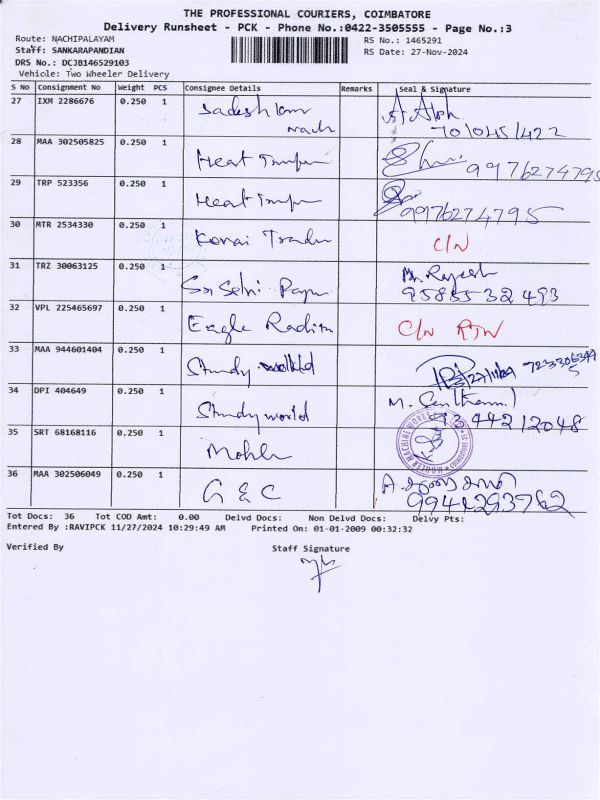 THE PROFESSIONAL COURIERS, COIMBATORE
Delivery Runsheet - PCK - Phone No.:0422-3505555 - Page No.:3
Route: NACHIPALAYAM
RS No.: 1465291
Staff: SANKARAPANDIAN
RS Date: 27-Nov-2024
DRS No.: DCJB146529103
Vehicle: Two Wheeler Delivery
S No Consignment No Weight PCS Consignee Details Remarks Seal & Signature
27 IXM 2286676 0.250 1
28 MAA 302505825 0.250 1 Heat 9976274795
29 TRP 523356 0.250 1 Heat 9976274795
30 MTR 2534330 0.250 1 C/N
31 TRZ 30063125 0.250 1 Sri Selvi Rajesh
9585532493
32 VPL 225465697 0.250 1 Eagle C/N RTN
33 MAA 944601404 0.250 1 Study
34 DPI 404649 0.250 1 Study world M.
35 SRT 68168116 0.250 1
MOHLER MACHINE WORKS
36 MAA 302506049 0.250 1 G & C
9944293762
Tot Docs: 36 Tot COD Amt: 0.00 Delvd Docs: Non Delvd Docs: Delvy Pts:
Entered By :RAVIPCK 11/27/2024 10:29:49 AM Printed On: 01-01-2009 00:32:32
Verified By Staff Signature